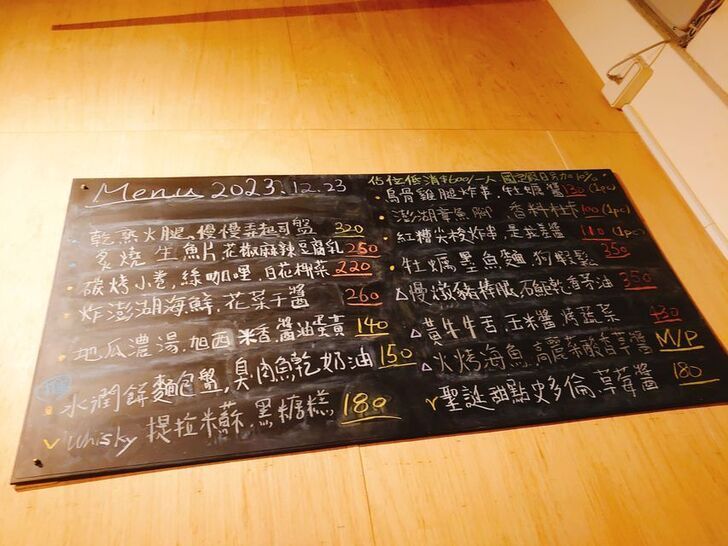 Menu 2023.12.23
乾熟火腿、慢慢弄起司盤 320
炙燒生魚片花椒麻辣豆腐乳 250
碳烤小卷,綠咖哩,白花椰菜 220
炸澎湖海鮮,花菜干醬 260
地瓜濃湯.旭西米香.醬油蛋黃 140
水潤餅麵包盤,臭肉魚乾奶油 150
Whisky 提拉米蘇.黑糖糕 180
佔位低消$600/一人 國定假日另加10%
烏骨雞腿炸串.牡蠣醬 130 (1pc)
澎湖章魚 香料 100 (1pc)
紅糟尖梭炸串. 醬 110 (1pc)
牡蠣墨魚麵 狗蝦鬆 350
慢燉豬棒腿.石鮔乾香茅油 350
黃牛牛舌.玉米醬 烤蔬菜 430
火烤海魚.高麗菜酸香草醬 M/P
聖誕甜點史多倫.草莓醬 180